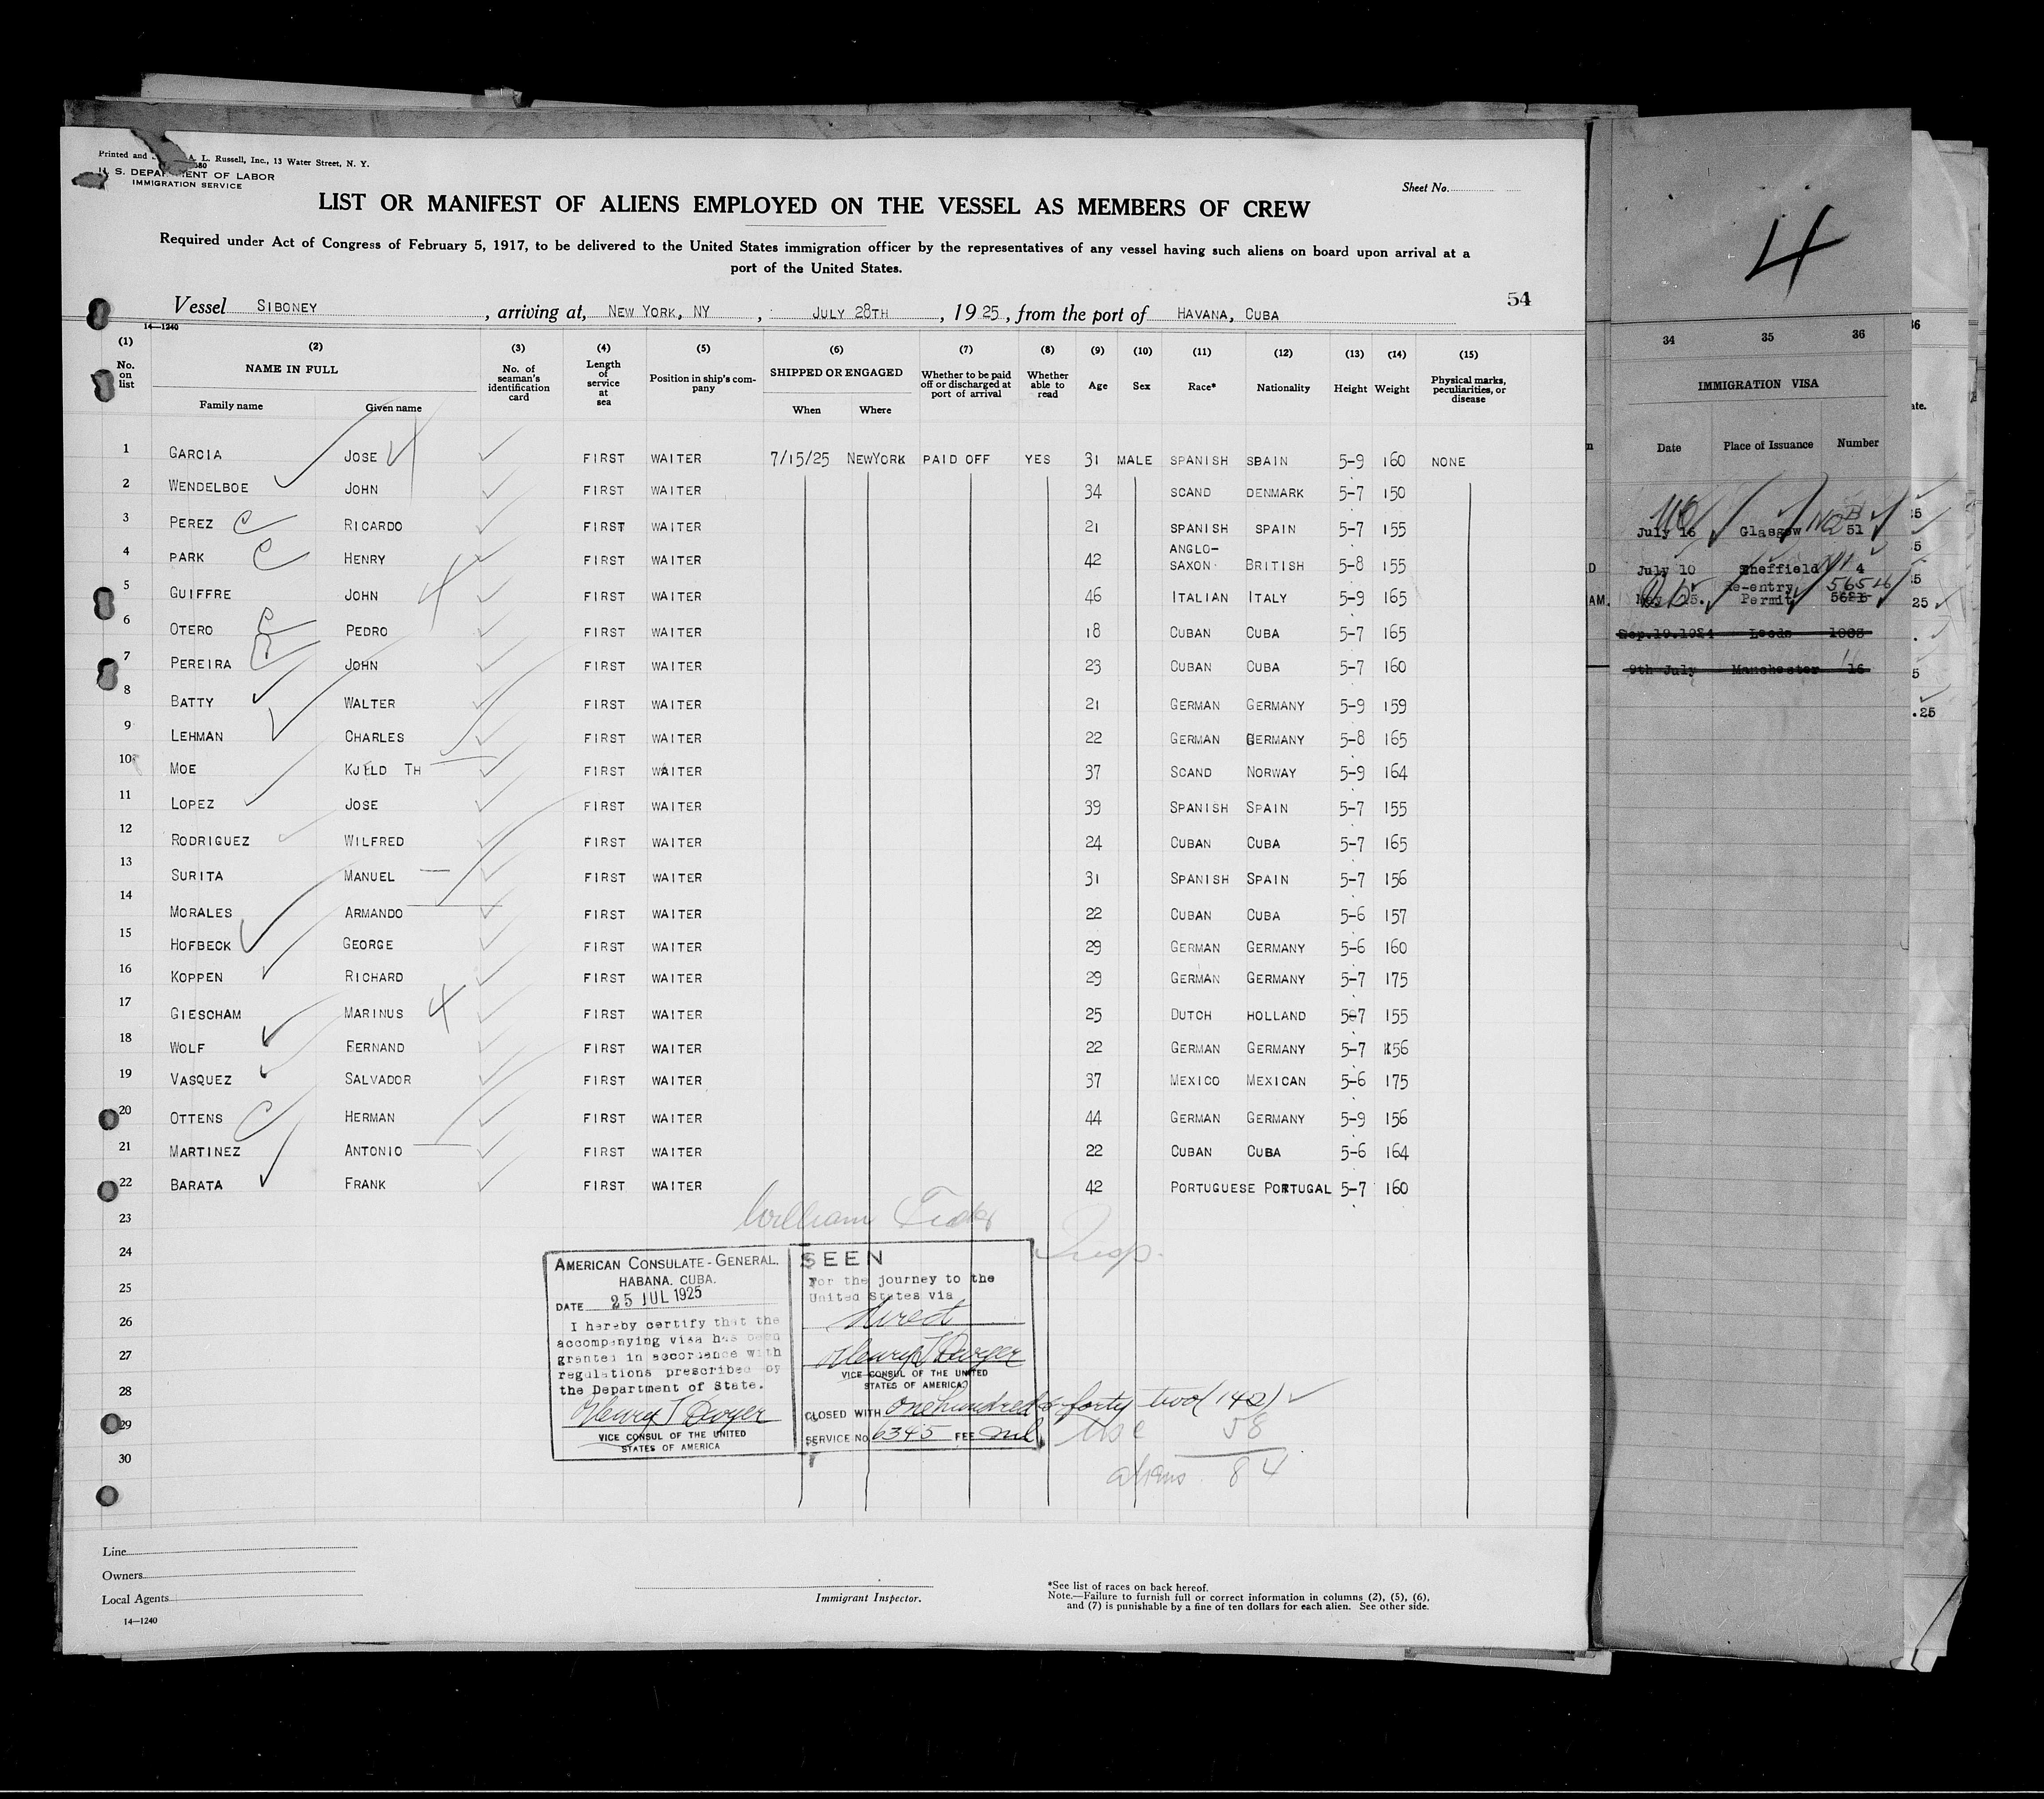 Printed and A. L. Russell, Inc., 13 Water Street, N. Y.
U. S. DEPARTMENT OF LABOR
IMMIGRATION SERVICE
Sheet No.
LIST OR MANIFEST OF ALIENS EMPLOYED ON THE VESSEL AS MEMBERS OF CREW
Required under Act of Congress of February 5, 1917, to be delivered to the United States immigration officer by the representatives of any vessel having such aliens on board upon arrival at a
port of the United States.
54
Vessel SIBONEY, arriving at, NEW YORK, NY, JULY 28TH, 1925, from the port of HAVANA, CUBA
14—1240
(1) (2) (3) (4) (5) (6) (7) (8) (9) (10) (11) (12) (13) (14) (15)
No. on list NAME IN FULL Family name Given name No. of seaman's identification card Length of service at sea Position in ship's company SHIPPED OR ENGAGED When Where Whether to be paid off or discharged at port of arrival Whether able to read Age Sex Race* Nationality Height Weight Physical marks, peculiarities, or disease
1 GARCIA JOSE FIRST WAITER 7/15/25 NEWYORK PAID OFF YES 31 MALE SPANISH SPAIN 5-9 160 NONE
2 WENDELBOE JOHN FIRST WAITER 34 SCAND DENMARK 5-7 150
3 PEREZ RICARDO FIRST WAITER 21 SPANISH SPAIN 5-7 155
4 PARK HENRY FIRST WAITER 42 ANGLO-SAXON BRITISH 5-8 155
5 GUIFFRE JOHN FIRST WAITER 46 ITALIAN ITALY 5-9 165
6 OTERO PEDRO FIRST WAITER 18 CUBAN CUBA 5-7 165
7 PEREIRA JOHN FIRST WAITER 23 CUBAN CUBA 5-7 160
8 BATTY WALTER FIRST WAITER 21 GERMAN GERMANY 5-9 159
9 LEHMAN CHARLES FIRST WAITER 22 GERMAN GERMANY 5-8 165
10 MOE KJELD TH FIRST WAITER 37 SCAND NORWAY 5-9 164
11 LOPEZ JOSE FIRST WAITER 39 SPANISH SPAIN 5-7 155
12 RODRIGUEZ WILFRED FIRST WAITER 24 CUBAN CUBA 5-7 165
13 SURITA MANUEL FIRST WAITER 31 SPANISH SPAIN 5-7 156
14 MORALES ARMANDO FIRST WAITER 22 CUBAN CUBA 5-6 157
15 HOFBECK GEORGE FIRST WAITER 29 GERMAN GERMANY 5-6 160
16 KOPPEN RICHARD FIRST WAITER 29 GERMAN GERMANY 5-7 175
17 GIESCHAM MARINUS FIRST WAITER 25 DUTCH HOLLAND 5-7 155
18 WOLF BERNAND FIRST WAITER 22 GERMAN GERMANY 5-7 156
19 VASQUEZ SALVADOR FIRST WAITER 37 MEXICO MEXICAN 5-6 175
20 OTTENS HERMAN FIRST WAITER 44 GERMAN GERMANY 5-9 156
21 MARTINEZ ANTONIO FIRST WAITER 22 CUBAN CUBA 5-6 164
22 BARATA FRANK FIRST WAITER 42 PORTUGUESE PORTUGAL 5-7 160
23
24
25
26
27
28
29
30
William
Insp.
AMERICAN CONSULATE-GENERAL.
HABANA. CUBA.
DATE 25 JUL 1925
I hereby certify that the
accompanying visa has been
granted in accordance with
regulations prescribed by
the Department of State.
Henry T Dwyer
VICE CONSUL OF THE UNITED
STATES OF AMERICA
SEEN
For the journey to the
United States via
direct
Henry T Dwyer
VICE CONSUL OF THE UNITED
STATES OF AMERICA
CLOSED WITH one hundred & forty two (142)
SERVICE No. 6345 FEE nil
USC 58
aliens 84
Line
Owners
Local Agents
14—1240
Immigrant Inspector.
*See list of races on back hereof.
Note.—Failure to furnish full or correct information in columns (2), (5), (6),
and (7) is punishable by a fine of ten dollars for each alien. See other side.
4
34 35 36
IMMIGRATION VISA
Date Place of Issuance Number
July 16 Glasgow 51
July 10 Sheffield 4
Re-entry
May 25. Permit
Sep.19.1924 Leeds 1063
9th July Manchester 16